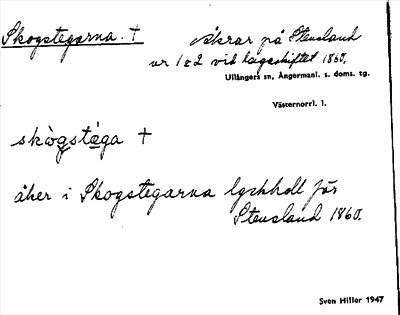 Skogstegarna. † åkrar på Stensland
nr 1 & 2 vid lagaskiftet 1860.
Ullångers sn, Ångermanl. s. doms. tg.
Västernorrl. l.
skògstèga †
åker i Skogstegarna lgskholl för
Stensland 1860.
Sven Hiller 1947